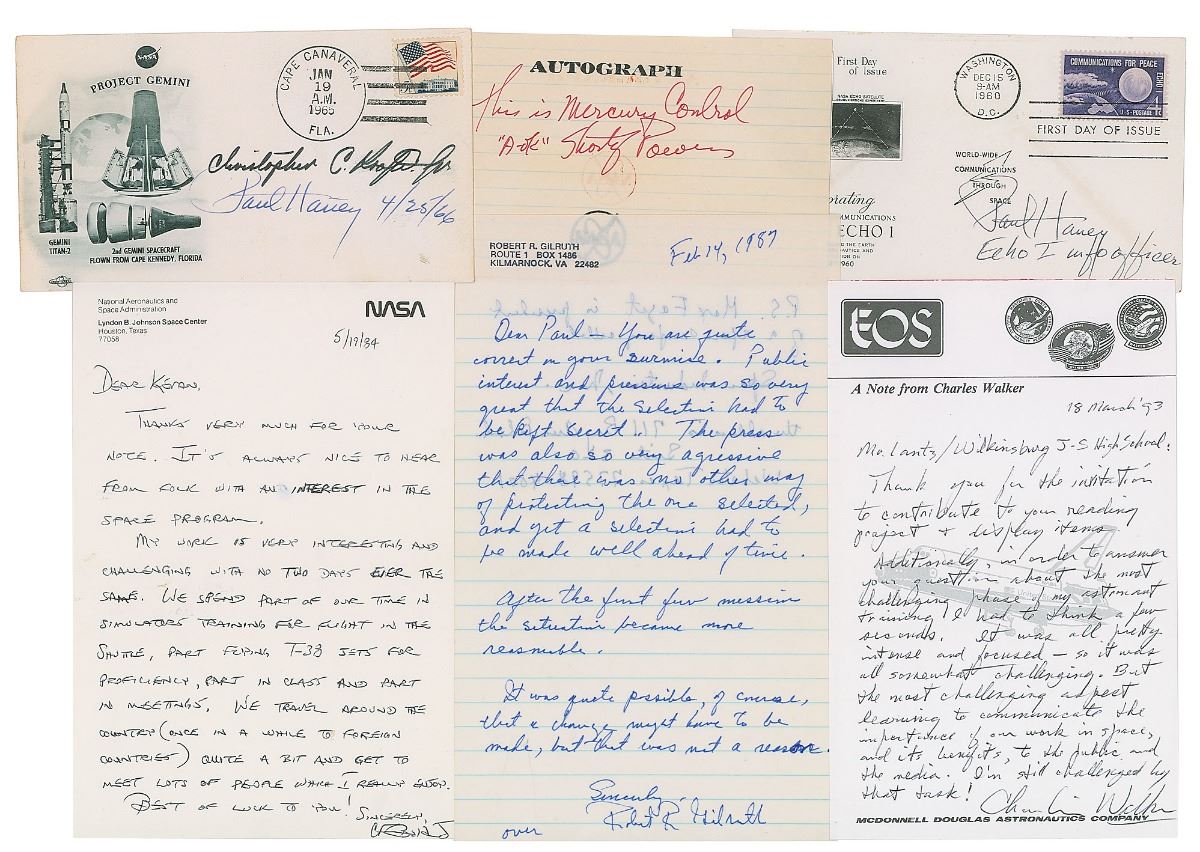 NASA
PROJECT GEMINI
CAPE CANAVERAL
JAN
19
A.M.
1965
FLA.
Christopher C. Kraft Jr
Paul Haney 4/28/66
GEMINI
TITAN-2
2nd GEMINI SPACECRAFT
FLOWN FROM CAPE KENNEDY, FLORIDA
AUTOGRAPH
This is Mercury Control
"A-ok" Shorty Powers
First Day
of Issue
WASHINGTON
DEC 15
9-AM
1960
D.C.
COMMUNICATIONS FOR PEACE
ECHO I
U.S. POSTAGE
FIRST DAY OF ISSUE
NASA ECHO SATELLITE
WORLD-WIDE
COMMUNICATIONS
THROUGH
SPACE
orating
OMMUNICATIONS
ECHO 1
ING THE EARTH
AUTICS AND
TION ON
1960
Paul Haney
Echo I info officer
ROBERT R. GILRUTH
ROUTE 1 BOX 1486
KILMARNOCK, VA 22482
Feb 14, 1987
Dear Paul - You are quite
correct in your surmise. Public
interest and pressure was so very
great that the selection had to
be kept secret. The press
was also so very agressive
that there was no other way
of protecting the one selected,
and yet a selection had to
be made well ahead of time.
After the first few mission
the situation became more
reasonable.
It was quite possible, of course,
that a change might have to be
made, but that was not a reason.
Sincerely,
Robert R. Gilruth
over
National Aeronautics and
Space Administration
Lyndon B. Johnson Space Center
Houston, Texas
77058
NASA
5/19/84
DEAR KEVAN,
THANKS VERY MUCH FOR YOUR
NOTE. IT'S ALWAYS NICE TO HEAR
FROM FOLK WITH AN INTEREST IN THE
SPACE PROGRAM.
MY WORK IS VERY INTERESTING AND
CHALLENGING WITH NO TWO DAYS EVER THE
SAME. WE SPEND PART OF OUR TIME IN
SIMULATORS TRAINING FOR FLIGHT IN THE
SHUTTLE, PART FLYING T-38 JETS FOR
PROFICIENCY, PART IN CLASS AND PART
IN MEETINGS. WE TRAVEL AROUND THE
COUNTRY (ONCE IN A WHILE TO FOREIGN
COUNTRIES) QUITE A BIT AND GET TO
MEET LOTS OF PEOPLE WHICH I REALLY ENJOY.
BEST OF LUCK TO YOU!
SINCERELY,
EOS
A Note from Charles Walker
18 March '93
Mo. Lantz/Wilkinsburg J-S High School:
Thank you for the invitation
to contribute to your reading
project & display items.
Additionally, in order to answer
your question about the most
challenging phase of my astronaut
training I had to think a few
seconds. It was all pretty
intense and focused - so it was
all somewhat challenging. But
the most challenging aspect
learning to communicate the
importance of our work in space,
and its benefits, to the public and
the media. I'm still challenged by
that task!
Charlie Walker
MCDONNELL DOUGLAS ASTRONAUTICS COMPANY